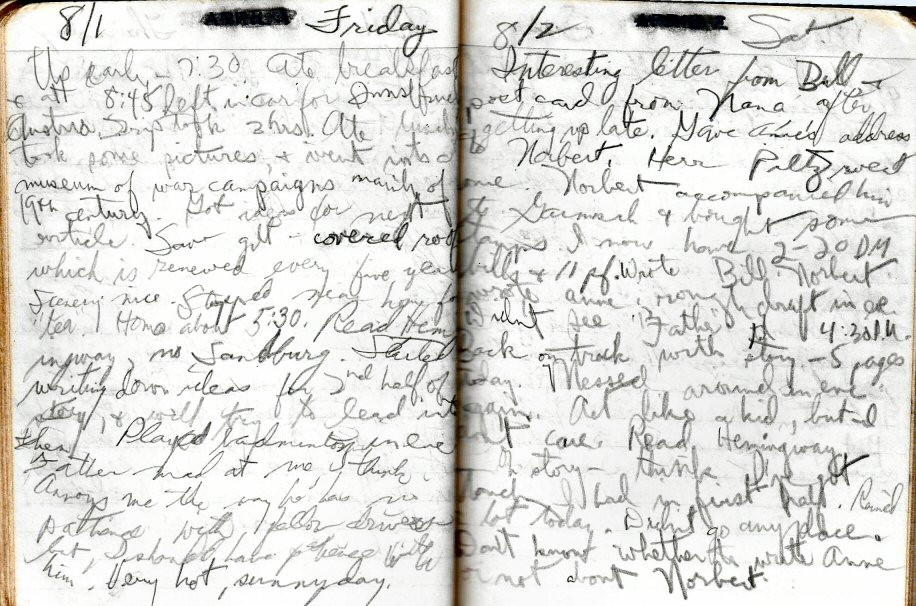 8/1 Friday
Up early - 7:30. Ate breakfast
& at 8:45 left in car for Innsbruck
Austria. Trip took 2 hrs. Ate lunch,
took some pictures, & went into a
museum of war campaigns mainly of
19th century. Got ideas for next
article. Saw gilt-covered roof
which is renewed every five years
Scenery nice. Stopped near home for
"tea". Home about 5:30. Read Hem
ingway, no Sandburg. Started
writing down ideas for 2nd half of
story, & will try to lead into
them. Played badminton in eve
Father mad at me I think.
Annoys me the way he has no
patience with fellow drivers
but I should have patience with
him. Very hot, sunny day.
8/2 Sat.
Interesting letter from Bill &
post card from Nana after
getting up late. Gave Anne's address
to Norbert. Herr Peltz went
home. Norbert accompanied him
to Garmisch & bought some
stamps. I now have 2-20 DM
bills & 11 pf. Write Bill. Norbert
wrote Anne, rough draft in eve
Didn't see Father to 4:30 P.M.
Back on track with story - 5 pages
today. Messed around in eve
again. Act like a kid, but I
don't care. Read Hemingway
In story - think I've got
touch I had in first half. Rained
a lot today. Didn't go any place.
Don't know whether to write Anne
or not about Norbert.